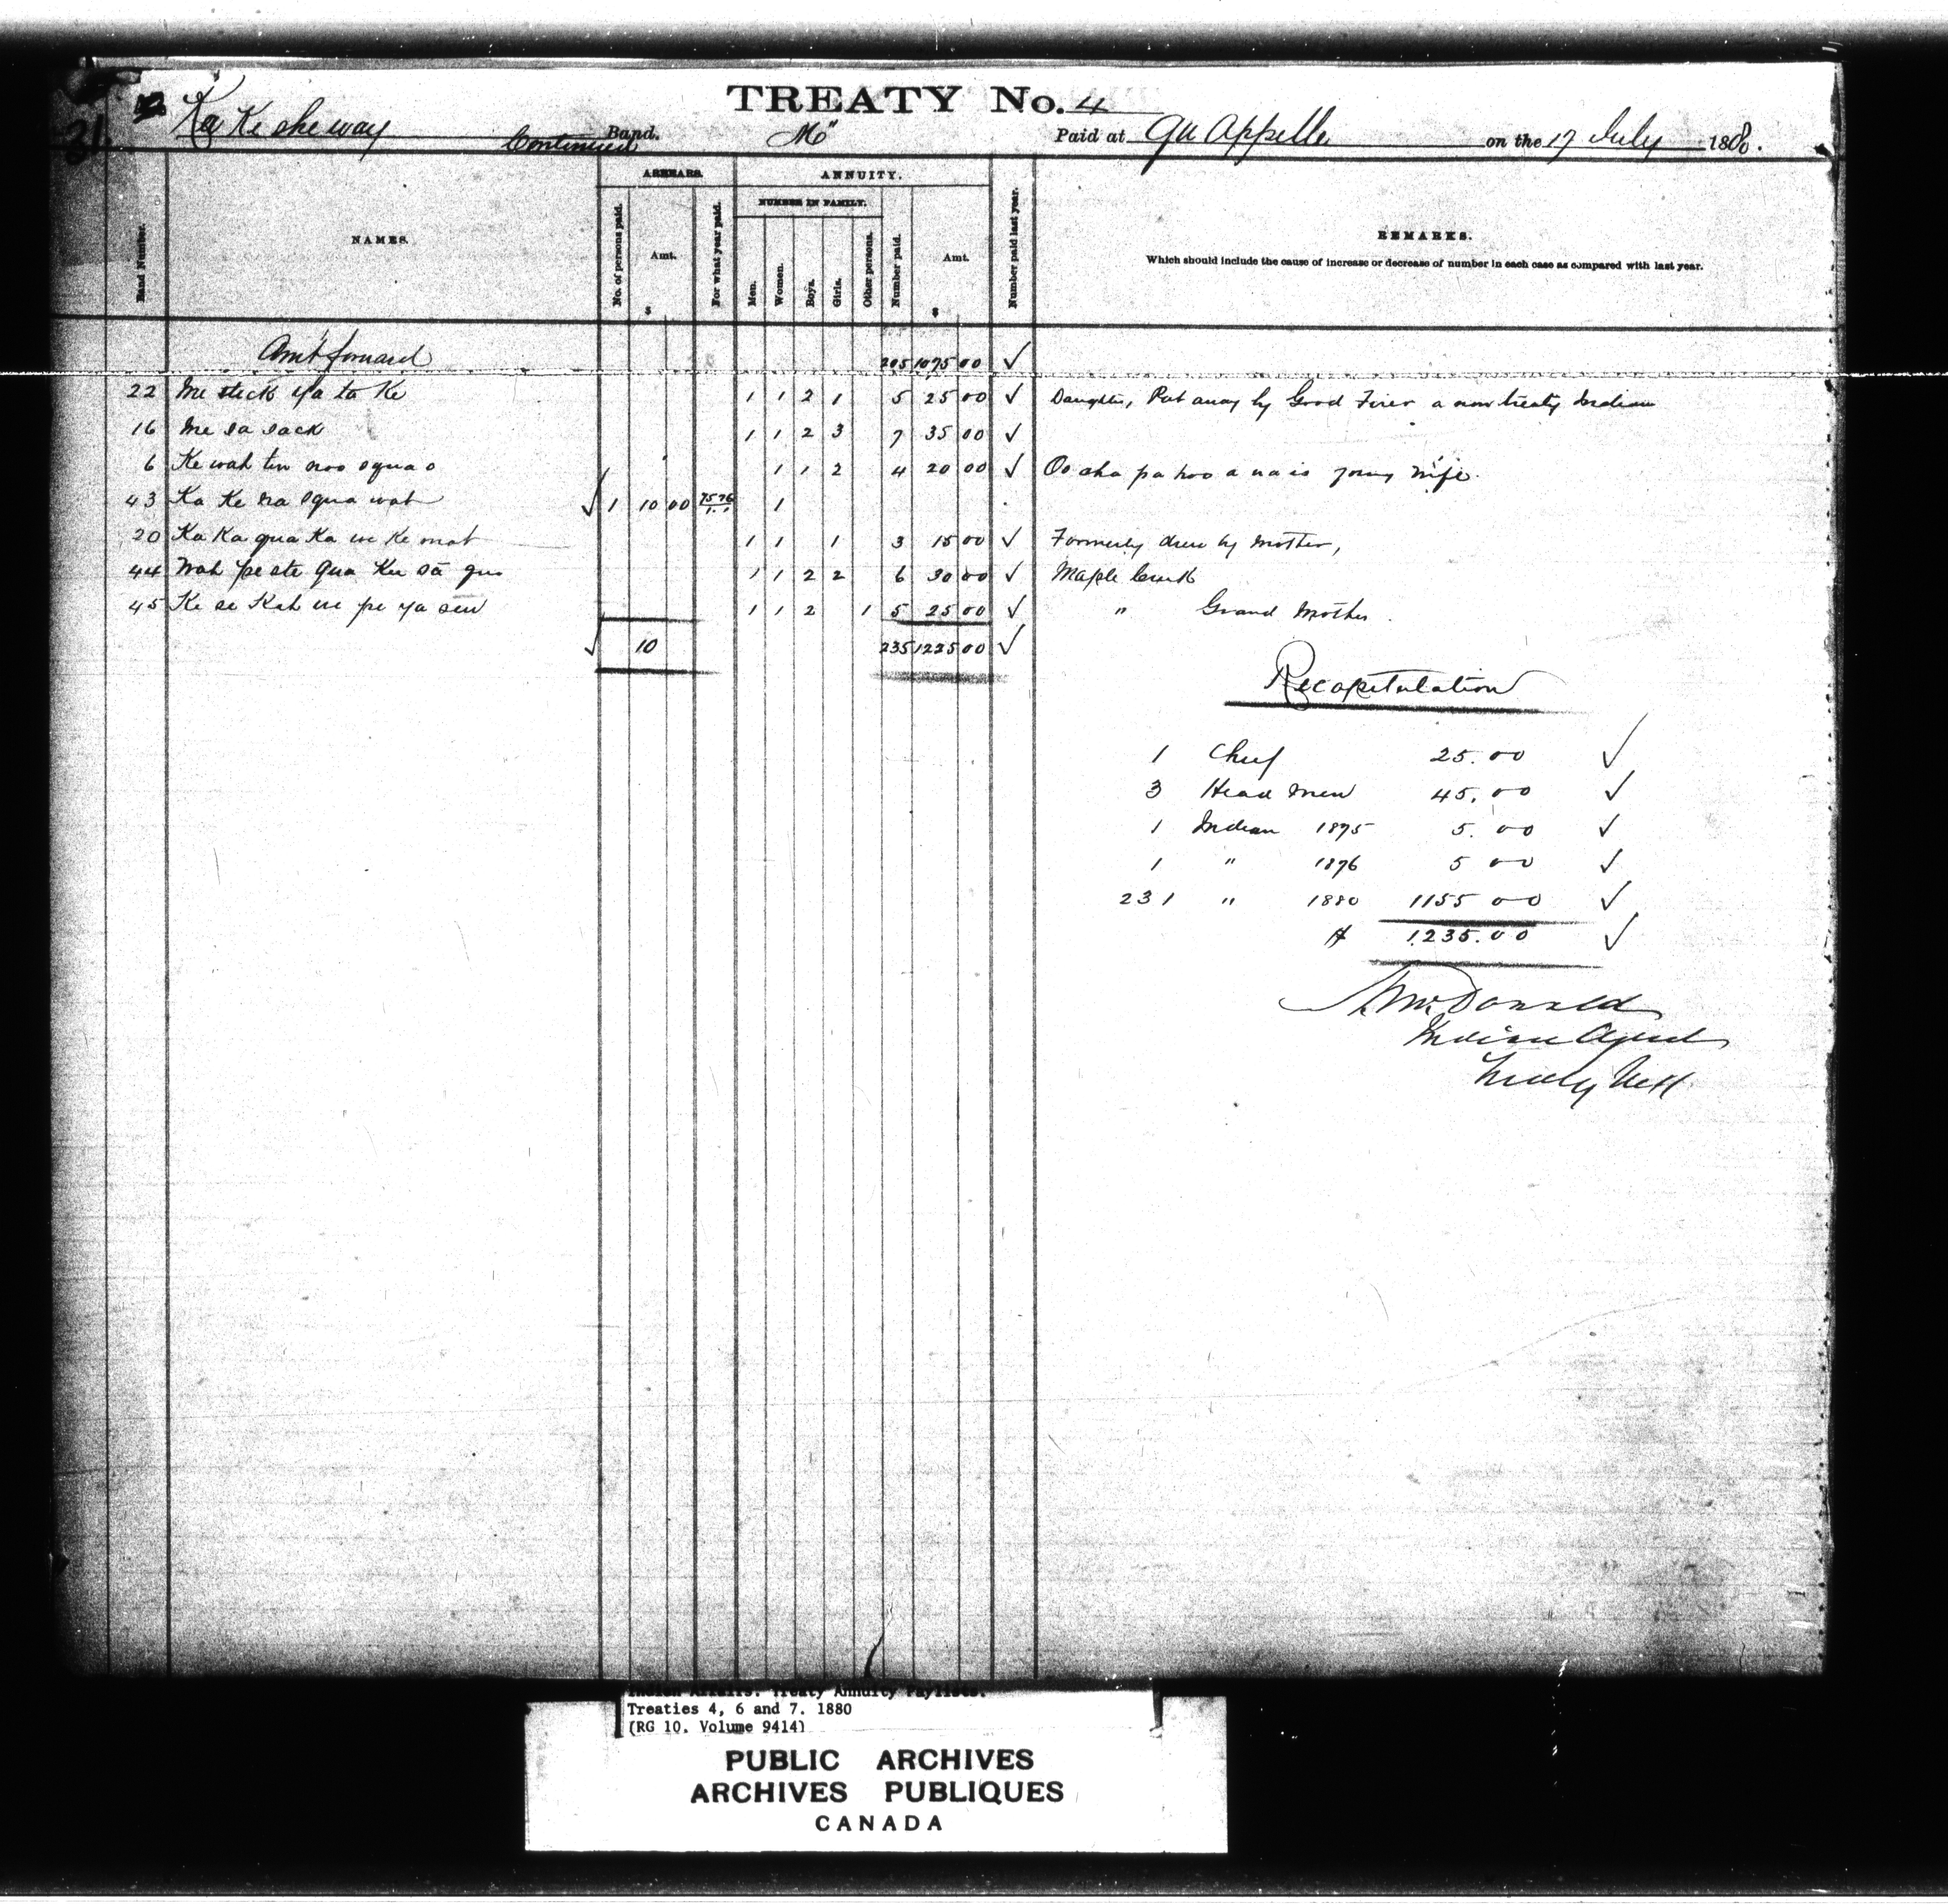 TREATY No. 4
Ka Ke she way Band. Continued "M" Paid at Qu Appelle on the 17 July 1880.
ARREARS. ANNUITY.
NUMBER IN FAMILY.
Band Number. NAMES. No. of persons paid. Amt. $ For what year paid. Men. Women. Boys. Girls. Other persons. Number paid. Amt. $ Number paid last year. REMARKS.
Which should include the cause of increase or decrease of number in each case as compared with last year.
Amt forward 205 1075 00 ✓
22 Me stick ya ta Ke 1 1 2 1 5 25 00 ✓ Daughter, Put away by Good Fixer a non treaty Indian
16 Me sa sack 1 1 2 3 7 35 00 ✓
6 Ke wah tin noo squa o 1 1 2 4 20 00 ✓ Oo cha pa hoo a na is young wife.
43 Ka Ke na squa wat ✓ 1 10 00 75 76 1
20 Ka Ka qua Ka we Ke mat 1 1 1 3 15 00 ✓ Formerly drew by Mother,
44 Wah pe ste qua 1 1 2 2 6 30 00 ✓ Maple Creek
45 Ke se Kah we pe ya sew 1 1 2 1 5 25 00 ✓ " Grand Mother
✓ 10 235 1225 00 ✓
Recapitulation
1 Chief 25.00 ✓
3 Head Men 45.00 ✓
1 Indian 1875 5.00 ✓
1 " 1876 5 00 ✓
231 " 1880 1155 00 ✓
$ 1235.00 ✓
A. McDonald
Indian Agent
Treaty No 4
Indian Affairs. Treaty Annuity Paylists.
Treaties 4, 6 and 7. 1880
(RG 10, Volume 9414)
PUBLIC ARCHIVES
ARCHIVES PUBLIQUES
CANADA